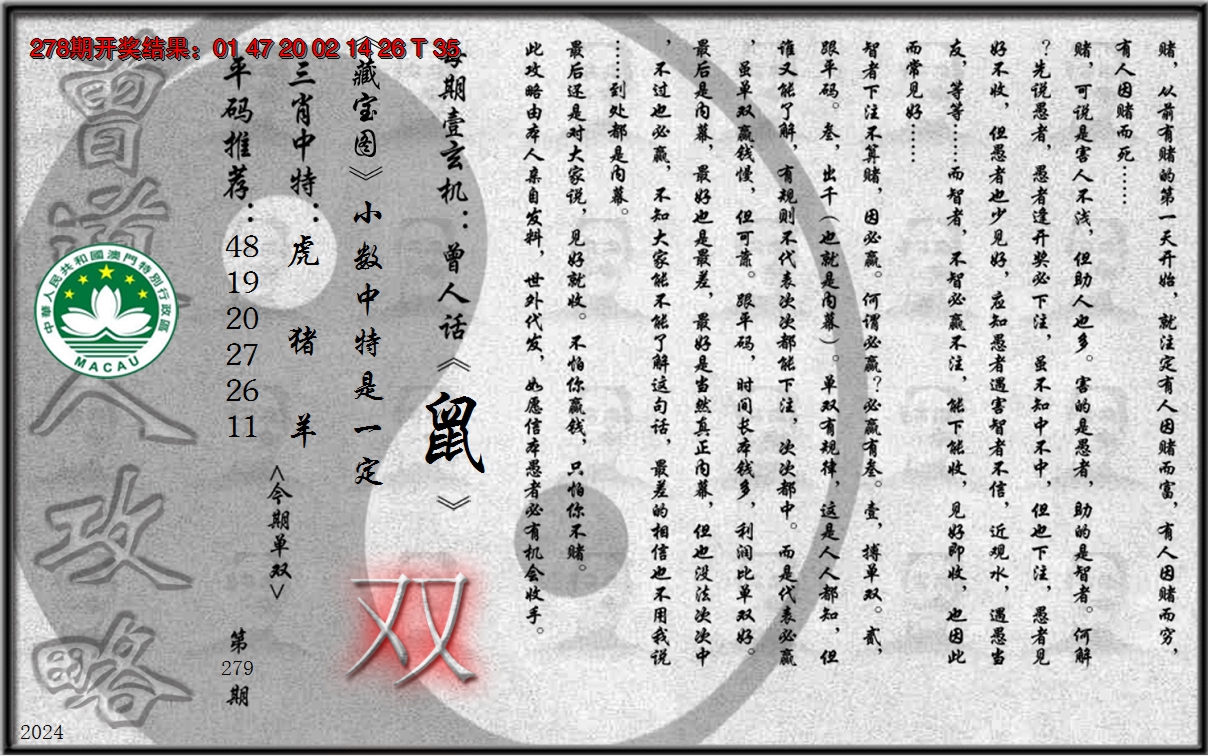 278期开奖结果：01 47 20 02 14 26 T 35
赌，从前有赌的第一天开始，就注定有人因赌而富，有人因赌而穷，
有人因赌而死……
赌，可说是害人不浅，但助人也多。害的是愚者，助的是智者。何解
？先说愚者，愚者逢开奖必下注，虽不知中不中，但也下注，愚者见
好不收，但愚者也少见好，应知愚者遇害智者不信，近观水，遇愚当
友，等等……而智者，不智必赢不注，能下能收，见好即收，也因此
而常见好……
智者下注不算赌，因必赢。何谓必赢？必赢有叁。壹，搏单双。贰，
跟平码。叁，出千（也就是内幕）。单双有规律，这是人人都知，但
谁又能了解，有规则不代表次次都能下注，次次都中。而是代表必赢
，虽单双赢钱慢，但可靠。跟平码，时间长本钱多，利润比单双好。
最后是内幕，最好也是最差，最好是当然真正内幕，但也没法次次中
，不过也必赢，不知大家能不能了解这句话，最差的相信也不用我说
……到处都是内幕。
最后还是对大家说，见好就收。不怕你赢钱，只怕你不赌。
此攻略由本人亲自发料，世外代发，如愿信本愚者必有机会收手。
每期壹玄机：曾人话《鼠》
《藏宝图》小数中特是一定
双
三肖中特：虎 猪 羊
<今期单双>
平码推荐：
48
19
20
27
26
11
第
279
期
曾道人攻略
中華人民共和國澳門特別行政區
MACAU
2024